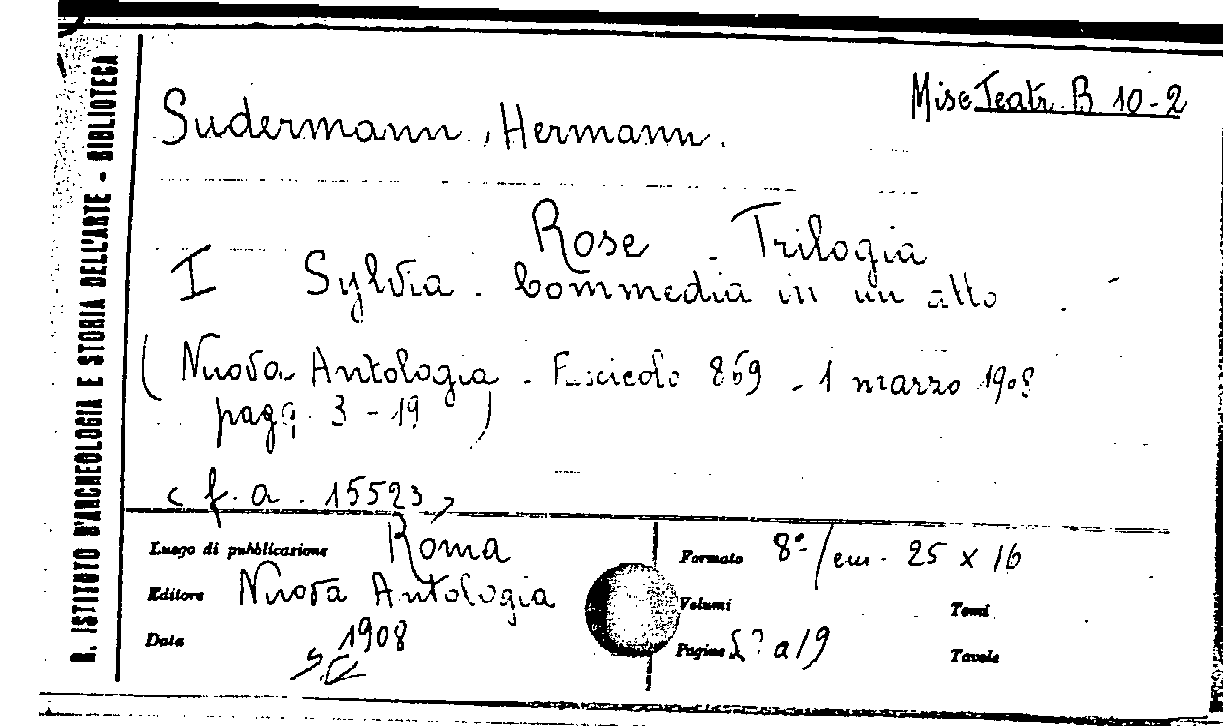 R. ISTITUTO D'ARCHEOLOGIA E STORIA DELL'ARTE - BIBLIOTECA
Misc Teatr. B 10-2
Sudermann, Hermann.
Rose - Trilogia
I Sylvia. Commedia in un atto.
(Nuova Antologia - Fascicolo 869 - 1 marzo 1908
pagg. 3 - 19)
< f. a. 15523 >
Luogo di pubblicazione Roma
Editore Nuova Antologia
Data 1908
Formato 8º/cm. 25 x 16
Volumi
Tomi
Pagine a 19
Tavole